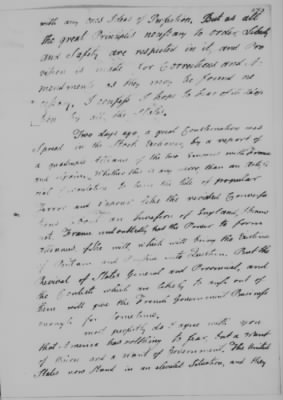 with any ones Ideas of Perfection. But as all
the great Principles necessary to order, Liberty
and Safety are respected in it, and Pro
vision is made for Corrections and A-
mendments as they may be found ne
cessary, I confess I hope to hear of its adop
tion by all the States.
Two days ago, a great Consternation was
Spread in the Stock Exchange by a report of
a quadruple Alliance of the two Empires with France
and Spain. Whether this is any more than an
to turn the tide of popular
and favour like the revived
an Invasion of England, I know
not. France undoubtedly has the Power to form
Alliances
of Britain and with Question. But the
Revival of States General and Provincial, and
the Contests which are likely to arise out of
them will give the French Government Business
enough for sometime.
most perfectly do I agree with you
that America has nothing to fear, but a want
of Union and a want of Government. The United
States now Stand in an elevated Situation, and they